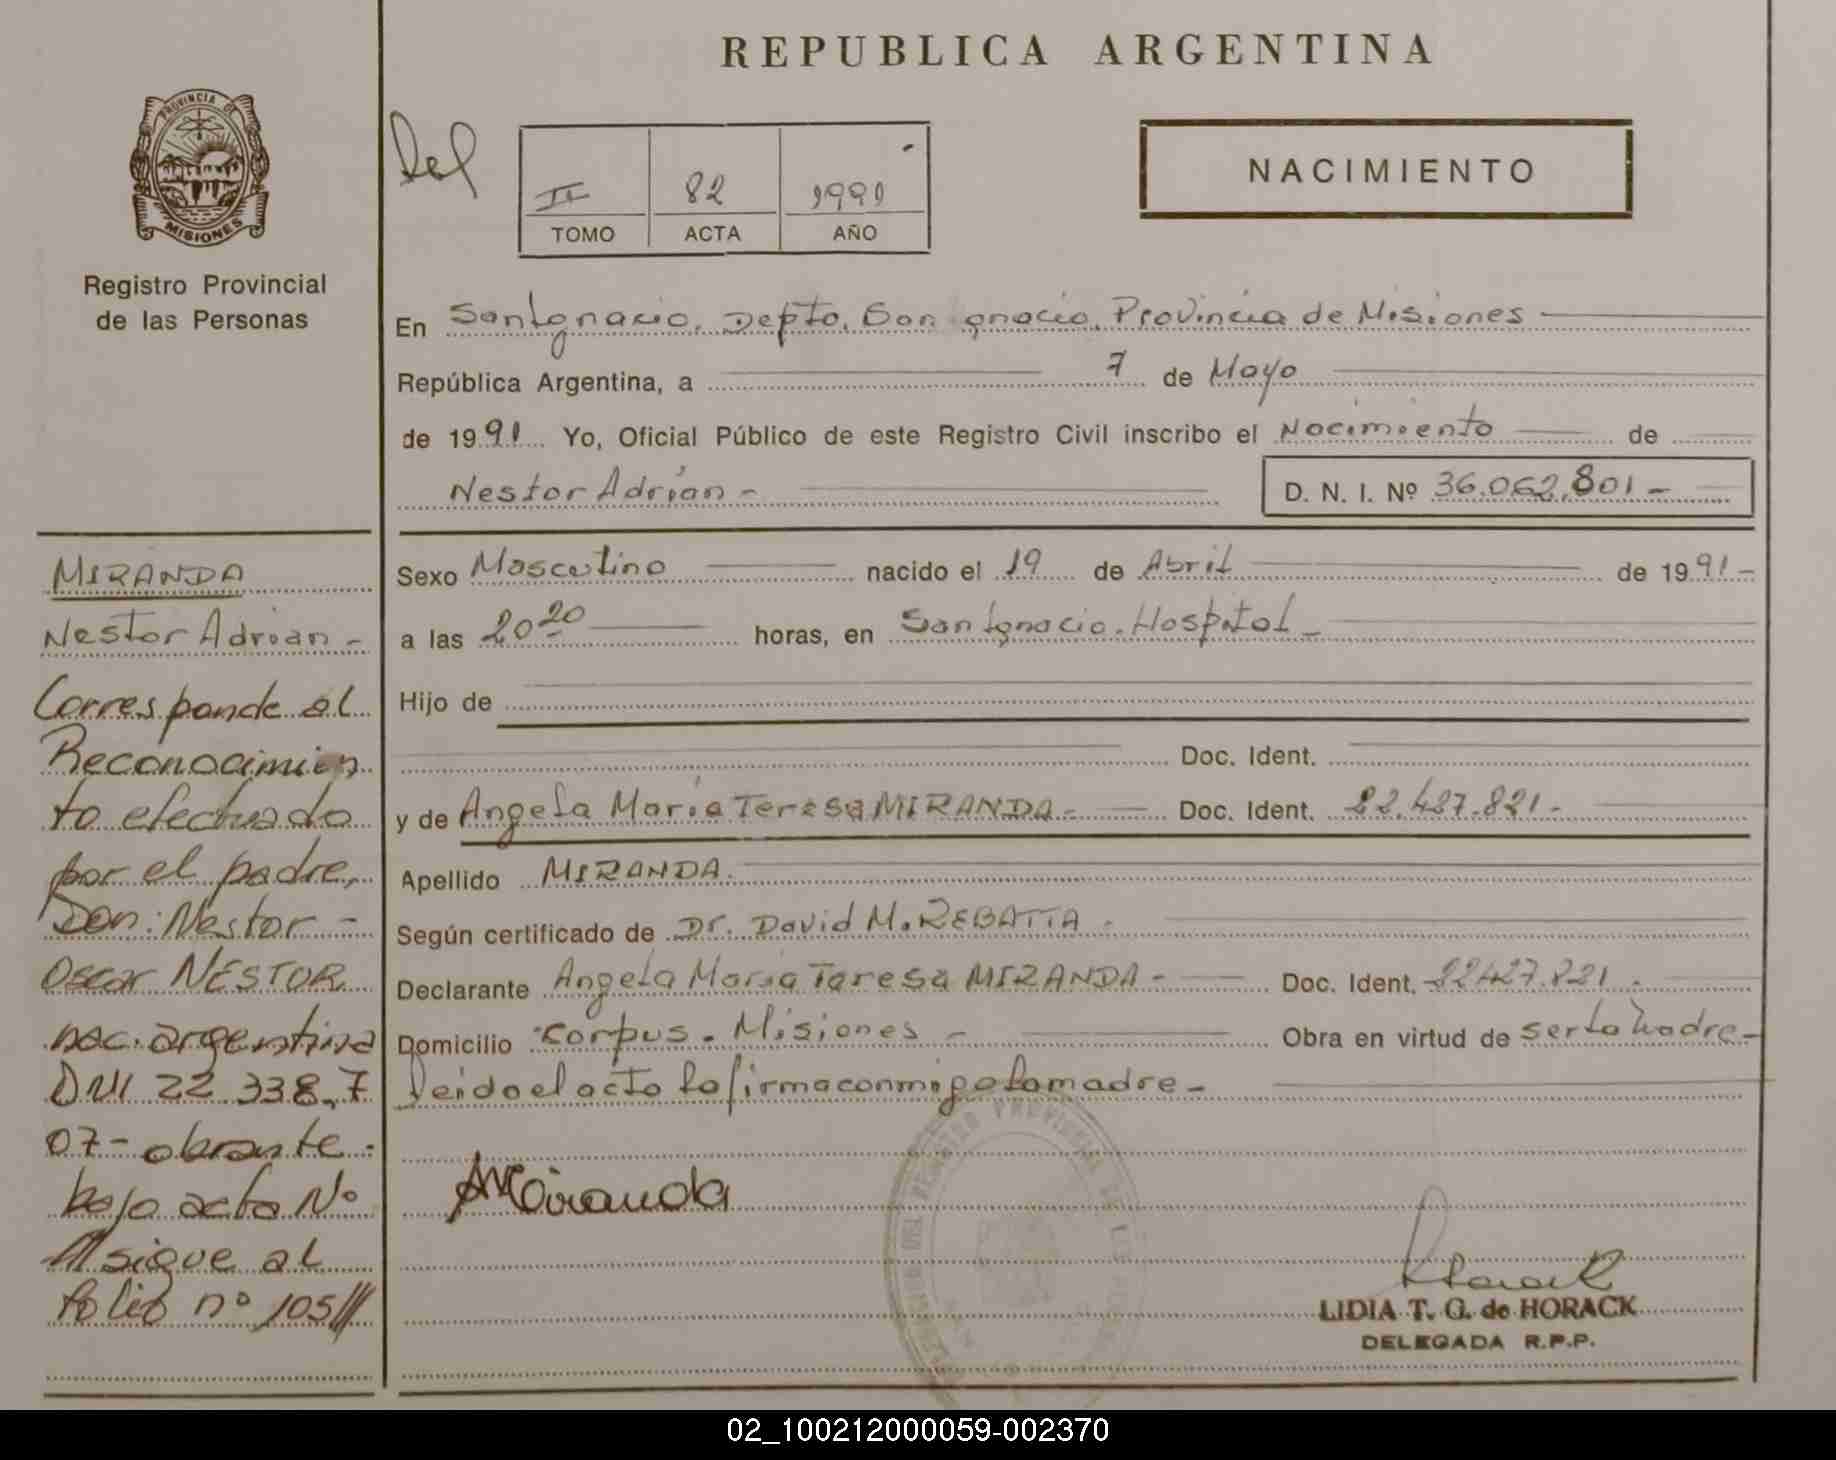 REPUBLICA ARGENTINA
PROVINCIA DE
MISIONES
Registro Provincial
de las Personas
Del
II 82 1991
TOMO ACTA AÑO
NACIMIENTO
En San Ignacio, Depto. San Ignacio, Provincia de Misiones
República Argentina, a 7 de Mayo
de 1991 Yo, Oficial Público de este Registro Civil inscribo el Nacimiento de
Nestor Adrián - D. N. I. Nº 36.062.801 -
Sexo Masculino nacido el 19 de Abril de 1991 -
a las 20 20 horas, en San Ignacio. Hospital -
Hijo de
Doc. Ident.
y de Angela María Teresa MIRANDA - Doc. Ident. 22.427.821 -
Apellido MIRANDA.
Según certificado de Dr. David M. REBATTA -
Declarante Angela María Teresa MIRANDA - Doc. Ident. 22427.821 -
Domicilio Corpus. Misiones - Obra en virtud de ser la madre -
Leido el acto la firma conmigo la madre -
MIRANDA
Nestor Adrian -
Corresponde al
Reconocimien
to efectuado
por el padre,
Don: Nestor -
Oscar NESTOR
nac. argentina
DNI 22.338.7
07 - obrante -
bajo acta Nº
sigue al
folio nº 105///
Miranda
Horack
LIDIA T. G. de HORACK
DELEGADA R.P.P.
02_100212000059-002370